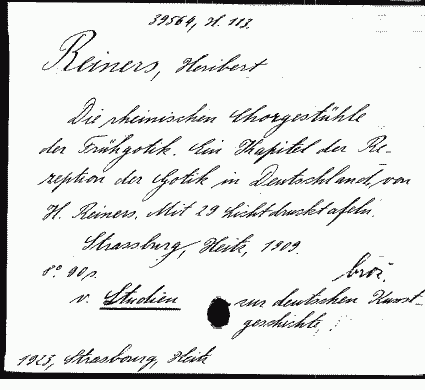 39564, H. 113.
Reiners, Heribert
Die rheinischen Chorgestühle
der Frühgotik. Ein Kapitel der Re-
zeption der Gotik in Deutschland, von
H. Reiners. Mit 29 Lichtdrucktafeln.
Strassburg, Heitz, 1909.
8° 90 p. broš.
v. Studien zur deutschen Kunst-
geschichte,
1923, Strasbourg, Heitz